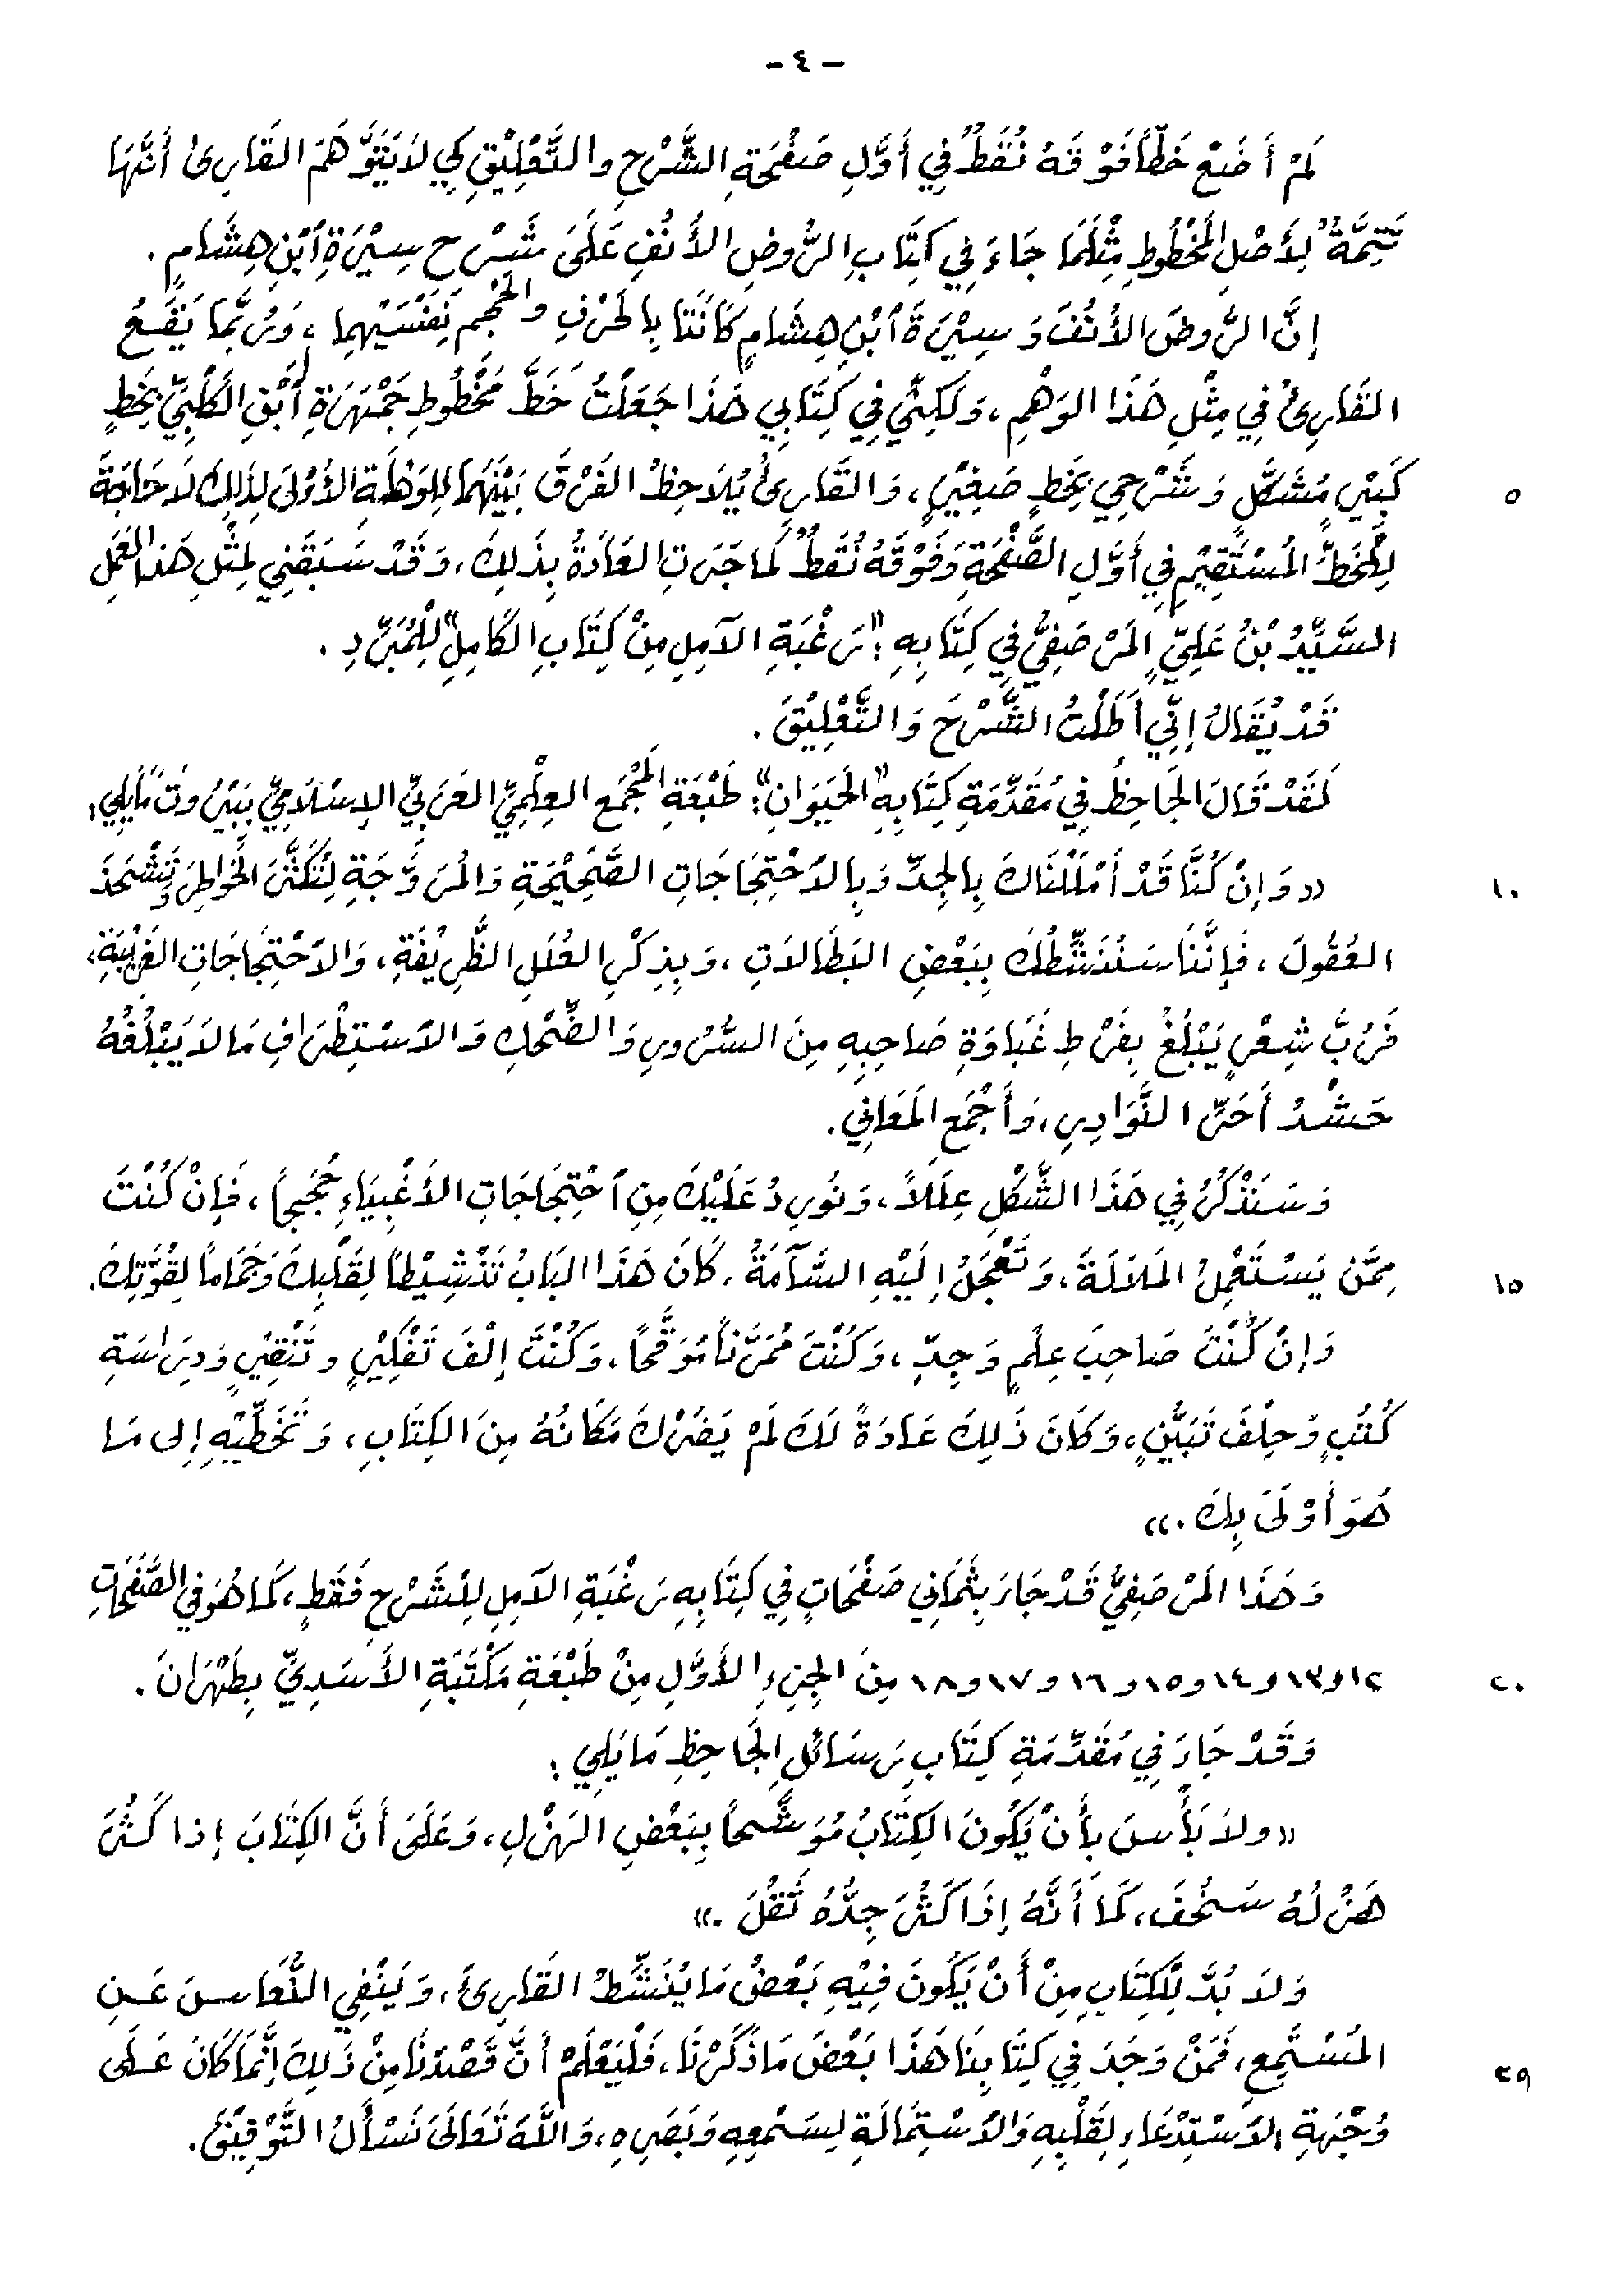 - ٤ -
لَمْ أَضَعْ خَطّاً فَوْقَهُ نُقَطٌ فِي أَوَّلِ صَفْحَةِ الشَّرْحِ والتَّعْلِيْقِ كَي لاَ يَتَوَهَّمَ القَارِئُ أَنَّهَا
تَتِمَّةٌ لِأَصْلِ المَخْطُوطِ مِثْلَمَا جَاءَ فِي كِتَابِ الرَّوضِ الأُنُفِ عَلَى شَرْحِ سِيْرَةِ ٱبْنِ هِشَامٍ .
إِنَّ الرَّوضَ الأُنُفَ وَ سِيْرَةَ ٱبْنِ هِشَامٍ كَانَتَا بِالحَرْفِ والحَجْمِ نَفْسَيْهِمَا ، وَرُبَّمَا يَقَعُ
القَارِئُ فِي مِثْلِ هَذَا الوَهْمِ ، وَلَكِنِّي فِي كِتَابِي هَذَا جَعَلْتُ خَطَّ مَخْطُوطِ جَمْهَرَةِ ٱبْنِ الكَلْبِيِّ بِخَطٍ
كَبِيْرٍ مُشَكَّلٍ وَشَرْحِي بِخَطٍ صَغِيْرٍ ، وَالقَارِئُ يُلاَحِظُ الفَرْقَ بَيْنَهُمَا لِلوَهْلَةِ الأُوْلَى لِذَلِكَ لاَ حَاجَةَ
٥
لِلْخَطِّ المُسْتَقِيْمِ فِي أَوَّلِ الصَّفْحَةِ وَفَوْقَهُ نُقَطٌ كَمَا جَرَتِ العَادَةُ بِذَلِكَ ، وَقَدْ سَبَقَنِي لِمِثْلِ هَذَا العَمَلِ
السَّيِّدُ بْنُ عَلِيٍّ المَرْصَفِيُّ فِي كِتَابِهِ : "رَغْبَةِ الآمِلِ مِنْ كِتَابِ الكَامِلِ" لِلْمُبَرِّدِ .
قَدْ يُقَالُ إِنِّي أَطَلْتُ الشَّرْحَ وَالتَّعْلِيْقَ .
لَقَدْ قَالَ الجَاحِظُ فِي مُقَدِّمَةِ كِتَابِهِ "الحَيَوَانِ" : طَبْعَةِ المَجْمَعِ العِلْمِيِّ العَرَبِيِّ الإِسْلاَمِيِّ بَبَيْرُوتَ مَايَلِي :
« وَإِنْ كُنَّا قَدْ أَمْلَلْنَاكَ بِالجِدِّ وَبِالاَحْتِجَاجَاتِ الصَّحِيْحَةِ وَالمُرَوَّجَةِ لِتُكَثِّرَ الخَوَاطِرَ وَتَشْحَذَ
١٠
العُقُولَ ، فَإِنَّنَا سَنُنَشِّطُكَ بِبَعْضِ البَطَالاَتِ ، وَبِذِكْرِ العُلَلِ الظَّرِيْفَةِ ، وَالاَحْتِجَاجَاتِ الغَرِيْبَةِ ،
فَرُبَّ شِعْرٍ يَبْلُغُ بِفَرْطِ غَبَاوَةِ صَاحِبِهِ مِنَ السُّرُورِ وَالضِّحْكِ وَالاَسْتِطْرَافِ مَا لاَ يَبْلُغُهُ
حَشْدُ أَحَرِّ النَّوَادِرِ ، وَأَجْمَعِ المَعَانِي .
وَسَنَذْكُرُ فِي هَذَا الشَّكْلِ عِلَلاً ، وَنُورِدُ عَلَيْكَ مِنِ ٱحْتِجَاجَاتِ الأَغْبِيَاءِ حُجَجاً ، فَإِنْ كُنْتَ
مِمَّن يَسْتَعْمِلُ المَلاَلَةَ ، وَتَعْجَلُ إِلَيْهِ السَّآمَةُ ، كَانَ هَذَا البَابُ تَنْشِيْطاً لِقَلْبِكَ وَجَمَاماً لِقُوَّتِكَ .
١٥
وَإِنْ كُنْتَ صَاحِبَ عِلْمٍ وَجِدٍّ ، وَكُنْتَ مُمَرَّناً مُوَقَّحاً ، وَكُنْتَ إِلْفَ تَفْكِيْرٍ وتَنْقِيْرٍ وَدِرَاسَةِ
كُتُبٍ وَحِلْفَ تَبَيُّنٍ ، وَكَانَ ذَلِكَ عَادَةً لَكَ لَمْ يَضُرَّكَ مَكَانُهُ مِنَ الكِتَابِ ، وَتَخَطِّيْهِ إِلى مَا
هُوَ أَوْلَى بِكَ .»
وَهَذَا المَرْصَفِيُّ قَدْ جَاءَ بِثَمَانِي صَفْحَاتٍ فِي كِتَابِهِ رَغْبَةِ الآمِلِ لِلشَرْحِ فَقَطْ ، كَمَا هُوَ فِي الصَّفَحَاتِ
١٢ و١٣ و١٤ و١٥ و١٦ و١٧ و١٨ مِنَ الجُزءِ الأَوَّلِ مِنْ طَبْعَةِ مَكْتَبَةِ الأَسَدِيِّ بِطَهْرَانَ .
٢٠
وَقَدْ جَاءَ فِي مُقَدِّمَةِ كِتَابِ رَسَائِلِ الجَاحِظِ مَايَلِي :
« ولاَ بَأْسَ بِأَنْ يَكُونَ الكِتَابُ مُوَشَّحاً بِبَعْضِ الهَزْلِ ، وَعَلَى أَنَّ الكِتَابَ إذا كَثُرَ
هَزْلُهُ سَخُفَ ، كَمَا أَنَّهُ إِذَا كَثُرَ جِدُّهُ ثَقُلَ .»
وَلاَ بُدَّ لِلْكِتَابِ مِنْ أَنْ يَكُونَ فِيْهِ بَعْضُ مَا يُنَشِّطُ القَارِئَ ، وَيَنْفِي النُّعَاسَ عَنِ
المُسْتَمِعِ ، فَمَنْ وَجَدَ فِي كِتَابِنَا هَذَا بَعْضَ مَا ذَكَرْنَا ، فَلْيَعْلَمْ أَنَّ قَصْدَنَا مِنْ ذَلِكَ إِنَّمَا كَانَ عَلَى
٢٥
وُجْهَةِ الاَسْتِدْعَاءِ لِقَلْبِهِ وَالاَسْتِمَالَةِ لِسَمْعِهِ وَبَصَرِهِ ، وَاللَّهَ تَعَالَى نَسْأَلُ التَّوْفِيْقَ .